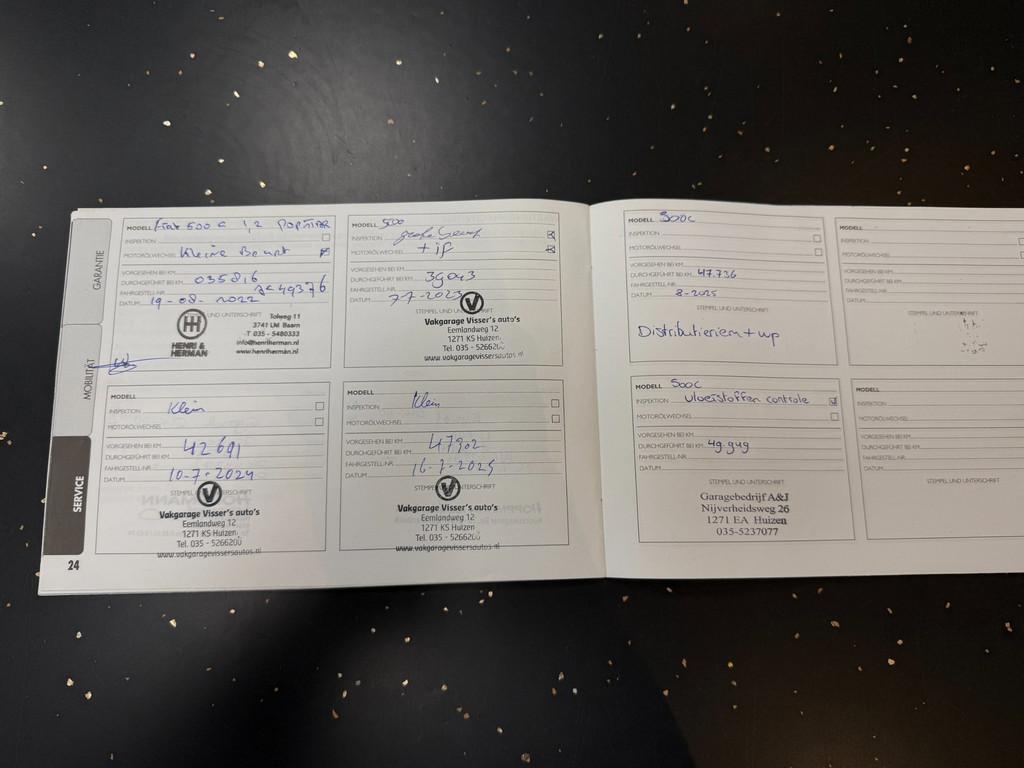 GARANTIE
MOBILITÄT
SERVICE
24
MODELL Fiat 500 C 1,2 POPSTAR
INSPEKTION
MOTORÖLWECHSEL Kleine Beurt
VORGESEHEN BEI KM
DURCHGEFÜHRT BEI KM 035816
FAHRGESTELL-NR. JC49376
DATUM 19-08-2022
STEMPEL UND UNTERSCHRIFT
HENRI & HERMAN
Tolweg 11
3741 LM Baarn
T 035 - 5480333
info@henriherman.nl
www.henriherman.nl
MODELL 500
INSPEKTION große Beurt
MOTORÖLWECHSEL + if
VORGESEHEN BEI KM
DURCHGEFÜHRT BEI KM 39043
FAHRGESTELL-NR.
DATUM 7-7-2023
STEMPEL UND UNTERSCHRIFT
Vakgarage Visser's auto's
Eemlandweg 12
1271 KS Huizen
Tel. 035 - 5266200
www.vakgaragevissersautos.nl
MODELL
INSPEKTION Klein
MOTORÖLWECHSEL
VORGESEHEN BEI KM
DURCHGEFÜHRT BEI KM 42691
FAHRGESTELL-NR.
DATUM 10-7-2024
STEMPEL UND UNTERSCHRIFT
Vakgarage Visser's auto's
Eemlandweg 12
1271 KS Huizen
Tel. 035 - 5266200
www.vakgaragevissersautos.nl
MODELL
INSPEKTION Klein
MOTORÖLWECHSEL
VORGESEHEN BEI KM
DURCHGEFÜHRT BEI KM 47902
FAHRGESTELL-NR.
DATUM 16-7-2025
STEMPEL UND UNTERSCHRIFT
Vakgarage Visser's auto's
Eemlandweg 12
1271 KS Huizen
Tel. 035 - 5266200
www.vakgaragevissersautos.nl
MODELL 500C
INSPEKTION
MOTORÖLWECHSEL
VORGESEHEN BEI KM
DURCHGEFÜHRT BEI KM 47.736
FAHRGESTELL-NR.
DATUM 8-2025
STEMPEL UND UNTERSCHRIFT
Distributieriem + wp
MODELL
INSPEKTION
MOTORÖLWECHSEL
VORGESEHEN BEI KM
DURCHGEFÜHRT BEI KM
FAHRGESTELL-NR.
DATUM
STEMPEL UND UNTERSCHRIFT
MODELL 500C
INSPEKTION Vloeistoffen controle
MOTORÖLWECHSEL
VORGESEHEN BEI KM
DURCHGEFÜHRT BEI KM 49.949
FAHRGESTELL-NR.
DATUM
STEMPEL UND UNTERSCHRIFT
Garagebedrijf A&J
Nijverheidsweg 26
1271 EA Huizen
035-5237077
MODELL
INSPEKTION
MOTORÖLWECHSEL
VORGESEHEN BEI KM
DURCHGEFÜHRT BEI KM
FAHRGESTELL-NR.
DATUM
STEMPEL UND UNTERSCHRIFT